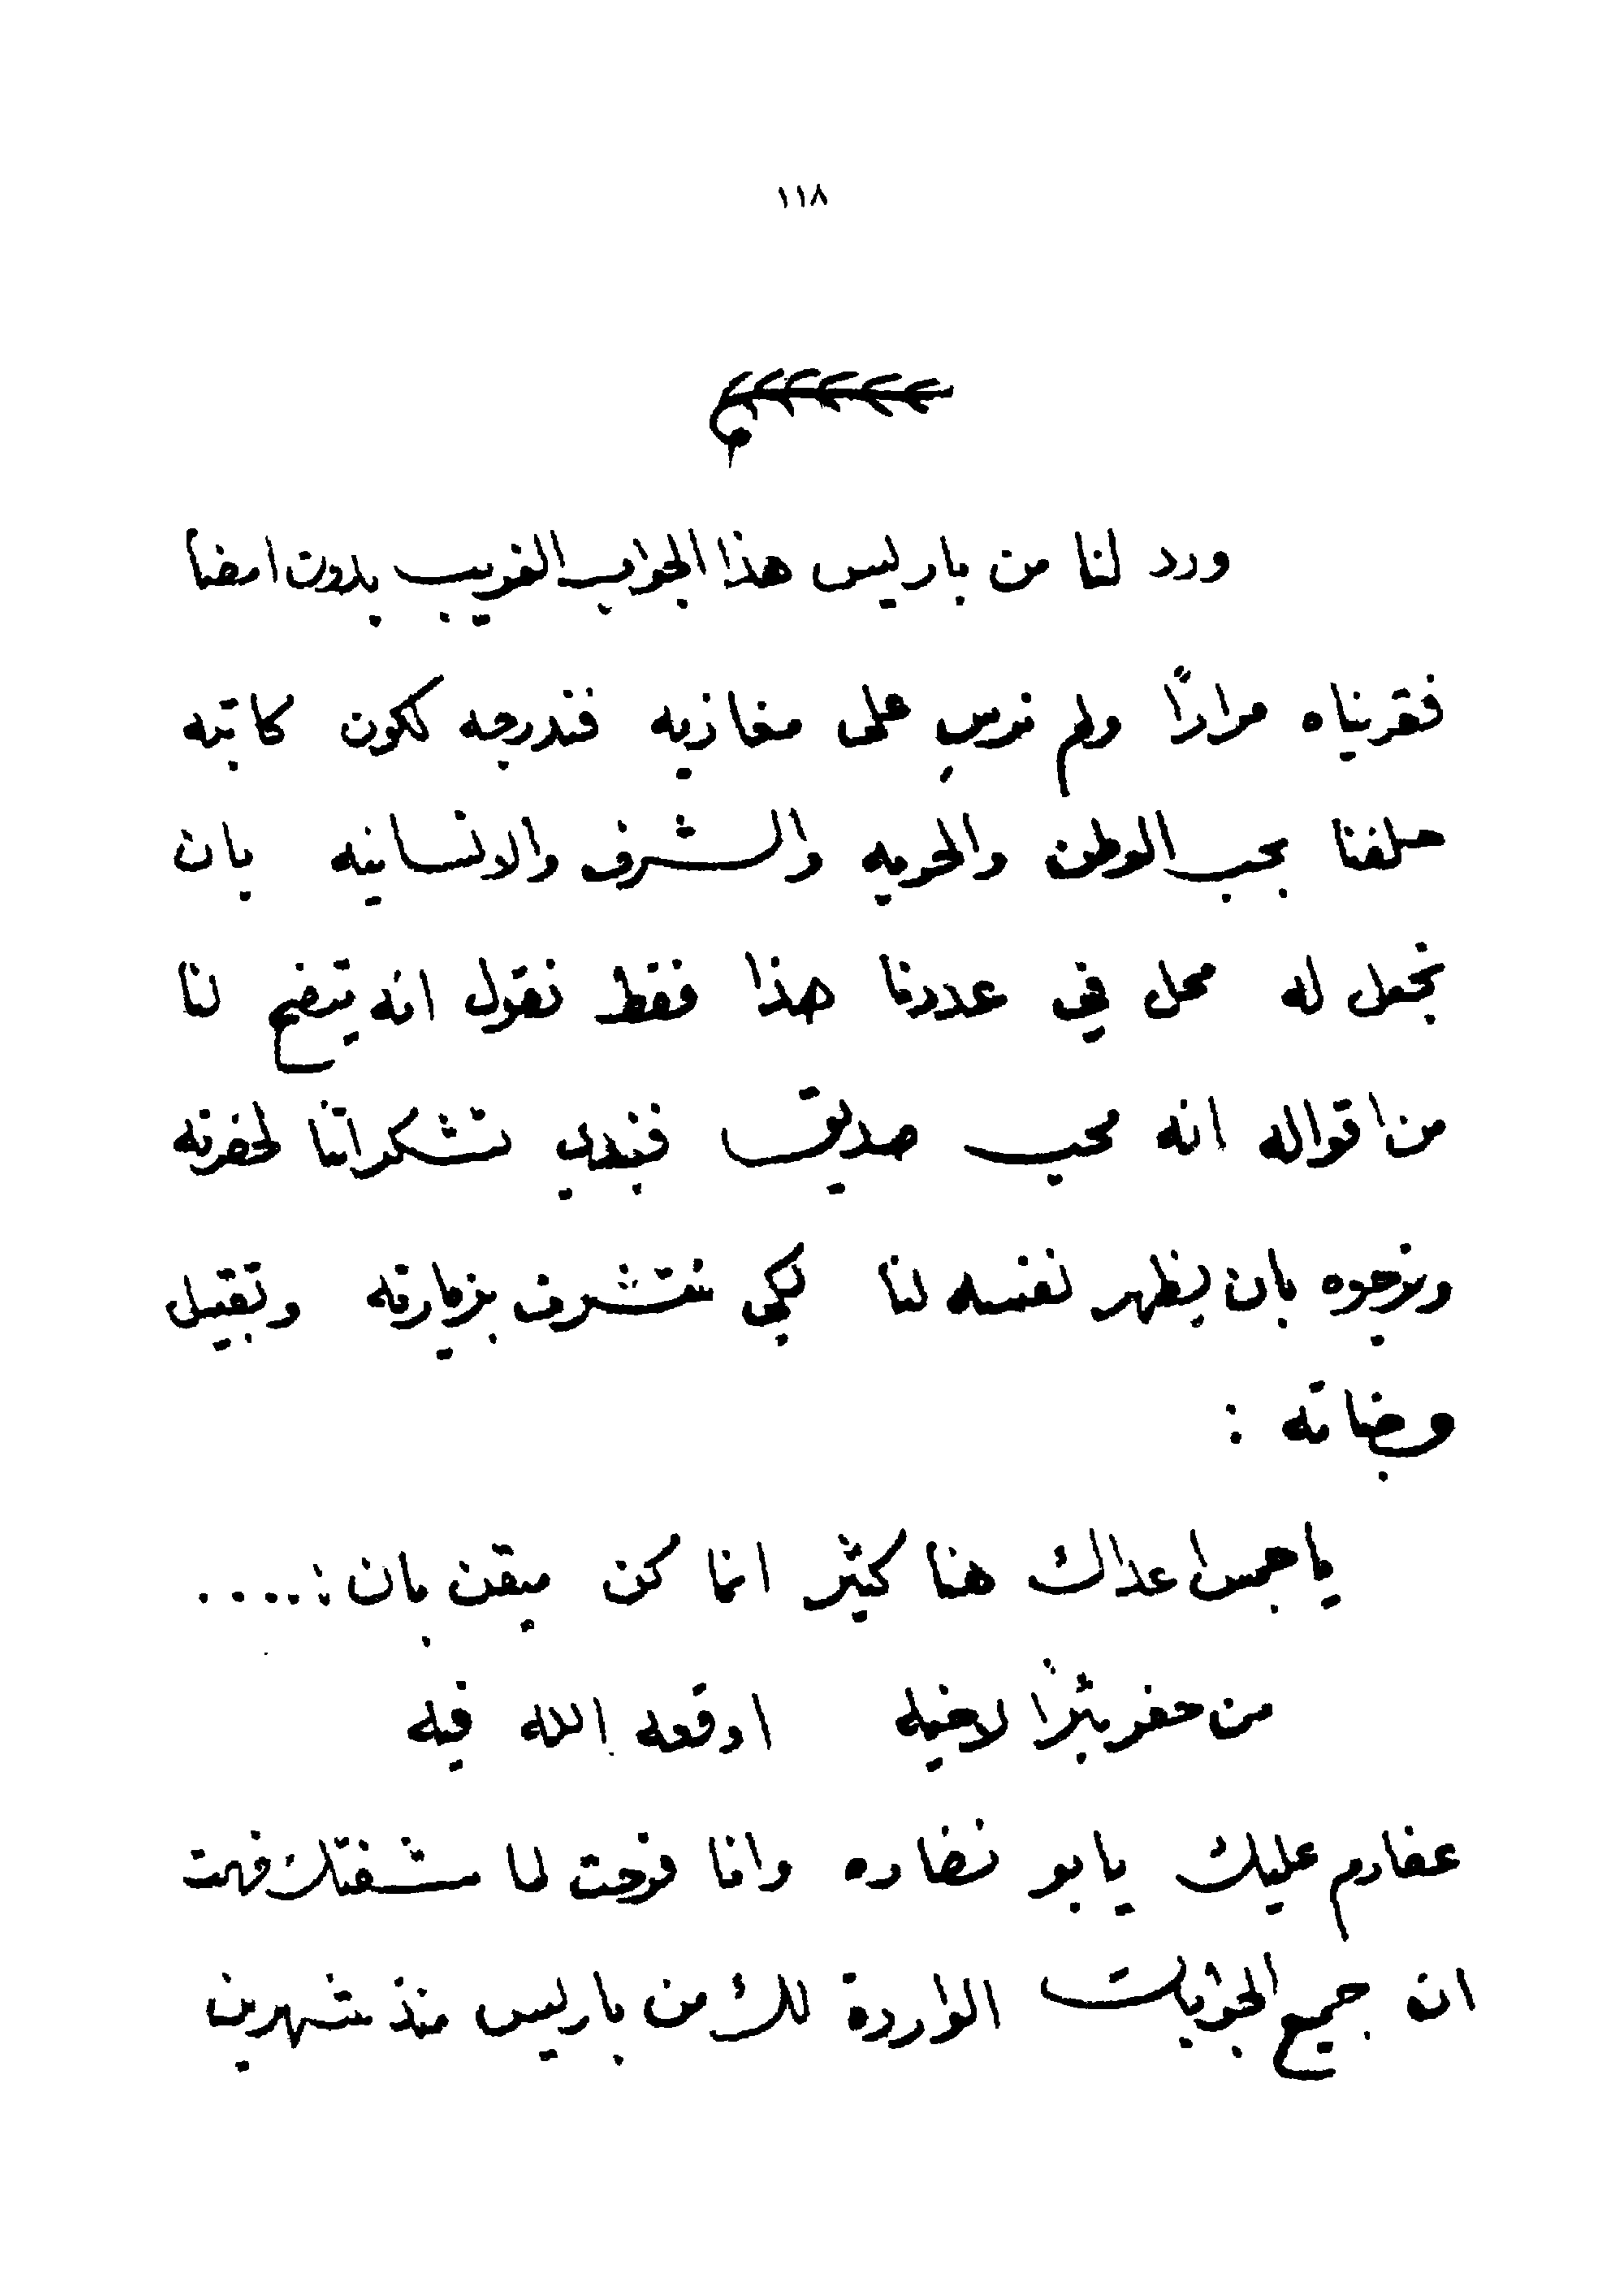 ١١٨
ورد لنا من باريس هذا الجواب الغريب بدون امضا
فقريناه مرارًا ولم نرسِ على مغازيه فندرجه لكون كاتبه
حلفنا بحب الوطن والحريه والشرف والانسانيه بان
نجعل له محل في عددنا هذا فقط نقول انه يتضح لنا
من اقواله انه محب صديق فنبدي تشكراتنا لحضرته
ونرجوه بان يظهر نفسه لنا لكي نتشرف بزيارته وتقبيل
وجناته :
يا جمس اعداك هنا كثير انما كن ميقن بان :....
من حفر بئرًا لاخيه اوقعه الله فيه
عفارم عليك يابو نضاره وانا فرحت لما شفتك فهمت
ان جميع الجوابات الواردة لك من باريس منذ شهرين